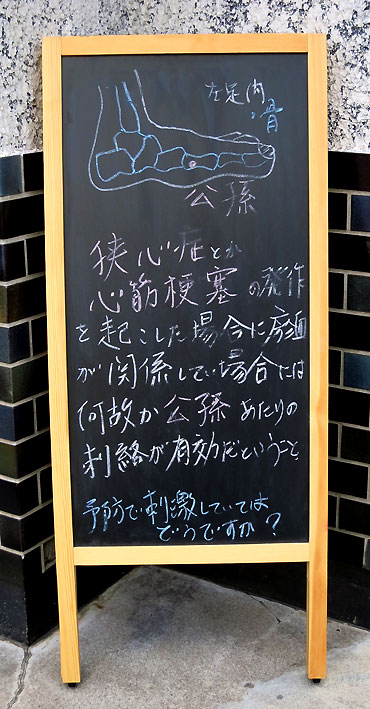 左足内
骨
公孫
狭心症とか
心筋梗塞の発作
を起こした場合に
が関係している場合には
何故か公孫あたりの
刺絡が有効だということ
予防で刺激していては
どうですか?